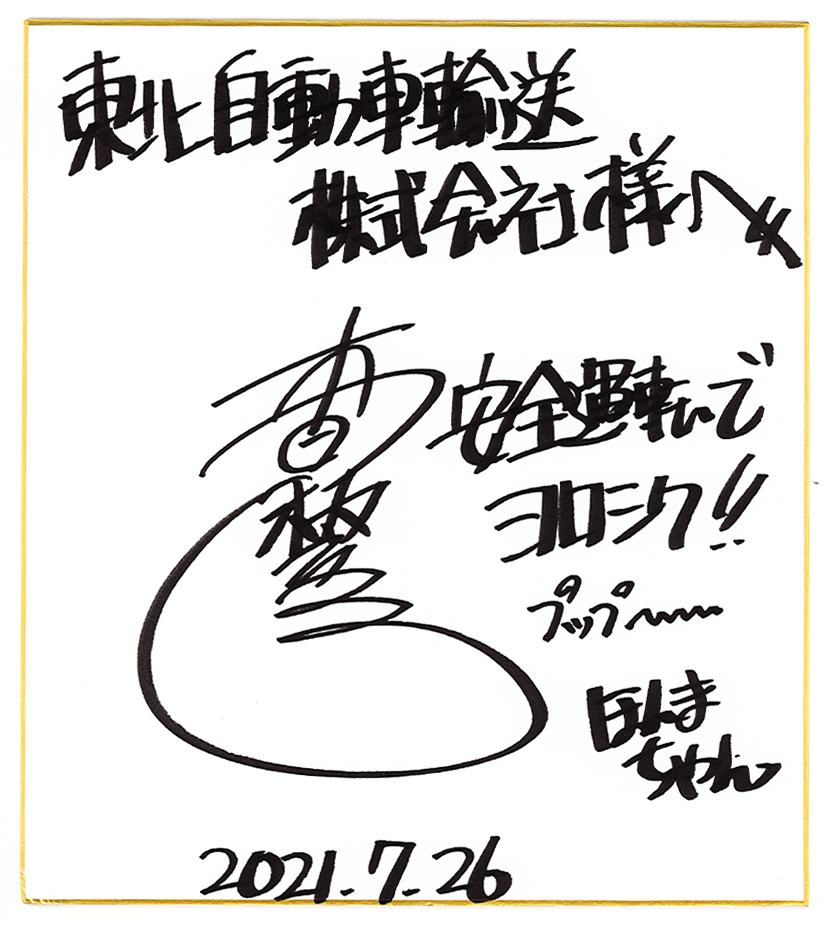 東北自動車輸送
株式会社様へ
安全運転で
ヨロシク!!
プップ〜
ほんま
ちゃん
2021.7.26